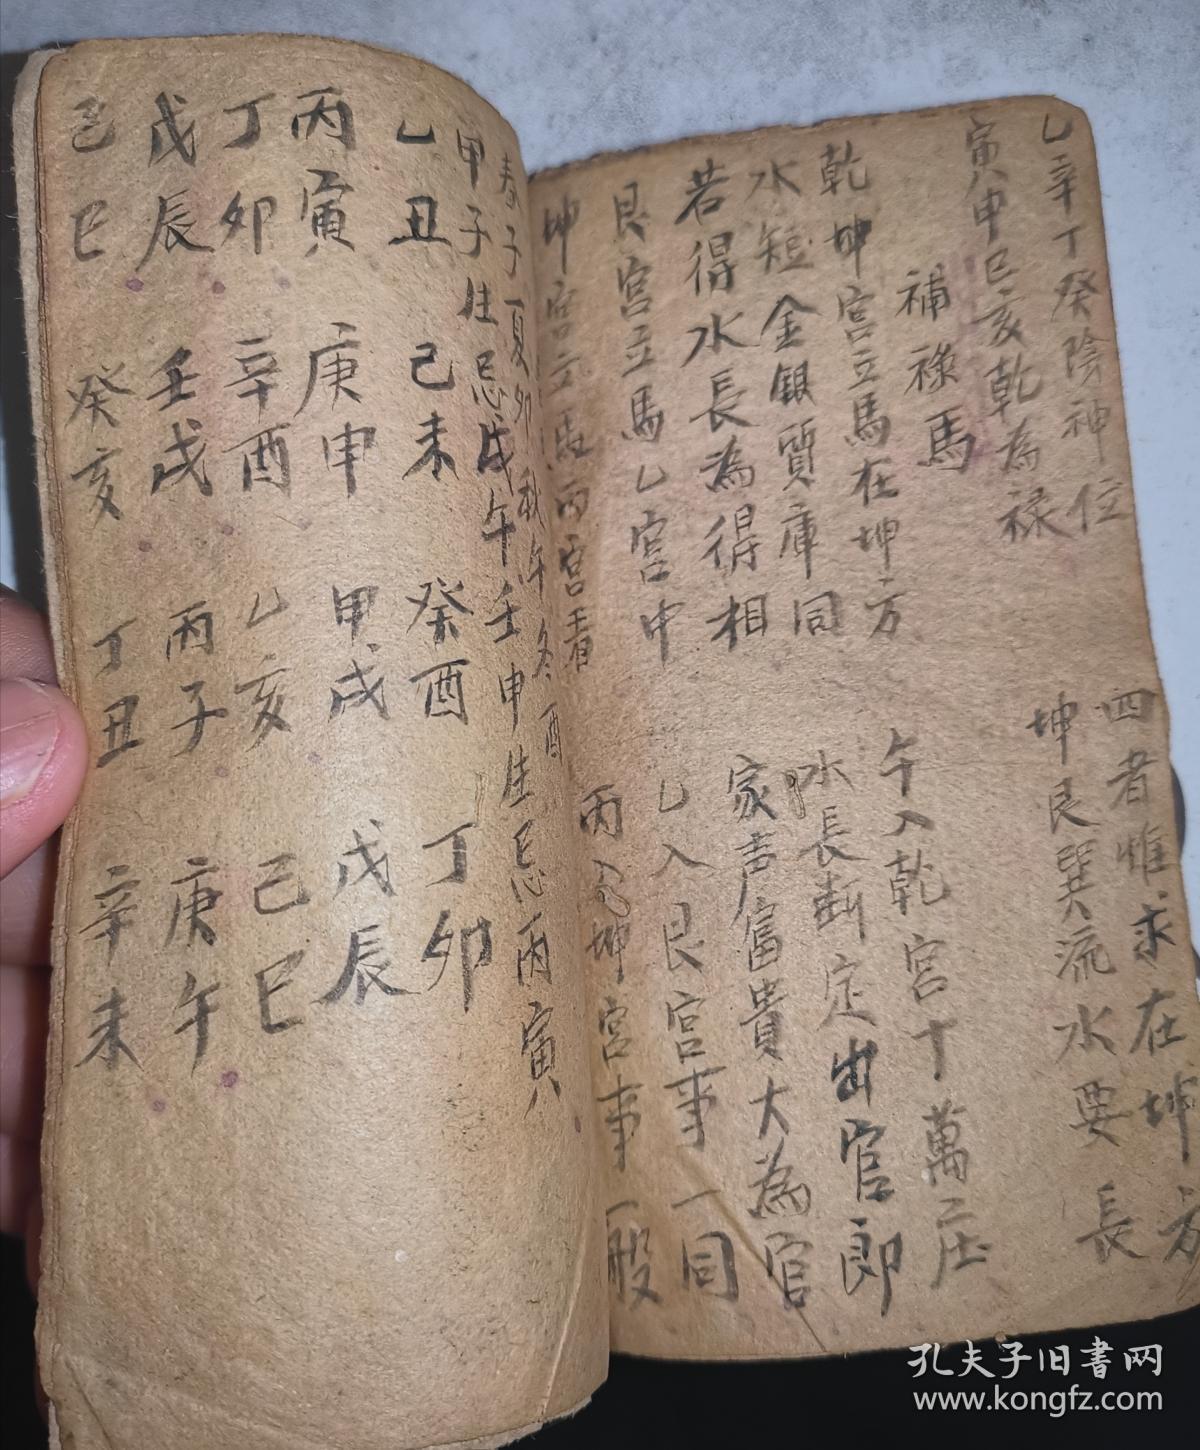 乙辛丁癸陰神位 四者惟求在坤方
寅申巳亥乾為禄 坤艮巽流水要長
補祿馬
乾坤宮立馬在坤方 午入乾宮丁萬庄
水短金銀質庫同 水長斷定出官郎
若得水長為得相 家声富貴大為官
艮宮立馬乙宮中 乙入艮宮事一同
坤宮立馬丙宮看 丙入坤宮事一般
春子夏卯秋午冬酉
甲子生忌戊午壬申生忌丙寅
乙丑 己未 癸酉 丁卯
丙寅 庚申 甲戌 戊辰
丁卯 辛酉 乙亥 己巳
戊辰 壬戌 丙子 庚午
己巳 癸亥 丁丑 辛未
孔夫子旧書网
www.kongfz.com